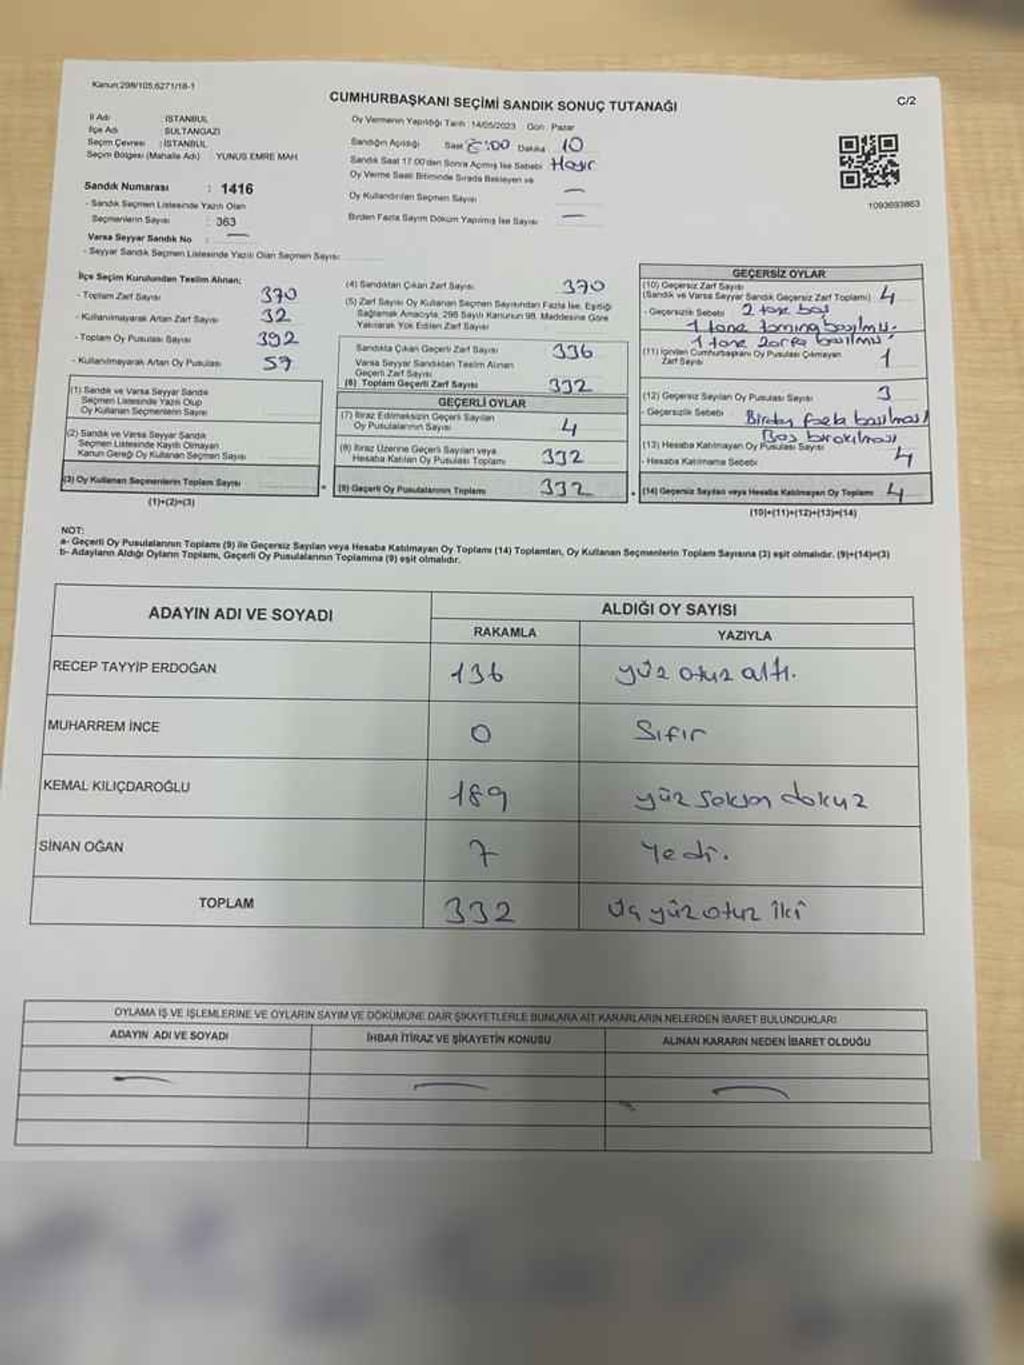 Kanun:298/105,6271/18-1
CUMHURBAŞKANI SEÇİMİ SANDIK SONUÇ TUTANAĞI
C/2
İl Adı : İSTANBUL
İlçe Adı : SULTANGAZİ
Seçim Çevresi : İSTANBUL
Seçim Bölgesi (Mahalle Adı) YUNUS EMRE MAH.
Sandık Numarası : 1416
- Sandık Seçmen Listesinde Yazılı Olan
Seçmenlerin Sayısı : 363
Varsa Seyyar Sandık No : —
- Seyyar Sandık Seçmen Listesinde Yazılı Olan Seçmen Sayısı:
Oy Vermenin Yapıldığı Tarih :14/05/2023 Gün : Pazar
Sandığın Açıldığı Saat 8:00 Dakika 10
Sandık Saat 17.00'den Sonra Açılmış İse Sebebi Hayır
Oy Verme Saati Bitiminde Sırada Bekleyen ve
Oy Kullandırılan Seçmen Sayısı —
Birden Fazla Sayım Döküm Yapılmış İse Sayısı —
1093693863
İlçe Seçim Kurulundan Teslim Alınan;
- Toplam Zarf Sayısı 370
- Kullanılmayarak Artan Zarf Sayısı 32
- Toplam Oy Pusulası Sayısı 392
- Kullanılmayarak Artan Oy Pusulası 57
(1) Sandık ve Varsa Seyyar Sandık
Seçmen Listesinde Yazılı Olup
Oy Kullanan Seçmenlerin Sayısı
(2) Sandık ve Varsa Seyyar Sandık
Seçmen Listesinde Kayıtlı Olmayan
Kanun Gereği Oy Kullanan Seçmen Sayısı
(3) Oy Kullanan Seçmenlerin Toplam Sayısı
(1)+(2)=(3)
(4) Sandıktan Çıkan Zarf Sayısı 370
(5) Zarf Sayısı Oy Kullanan Seçmen Sayısından Fazla İse, Eşitliği
Sağlamak Amacıyla, 298 Sayılı Kanunun 98. Maddesine Göre
Yakılarak Yok Edilen Zarf Sayısı
Sandıkta Çıkan Geçerli Zarf Sayısı 336
Varsa Seyyar Sandıktan Teslim Alınan
Geçerli Zarf Sayısı
(6) Toplam Geçerli Zarf Sayısı 332
GEÇERLİ OYLAR
(7) İtiraz Edilmeksizin Geçerli Sayılan
Oy Pusulalarının Sayısı 4
(8) İtiraz Üzerine Geçerli Sayılan veya
Hesaba Katılan Oy Pusulası Toplamı 332
(9) Geçerli Oy Pusulalarının Toplamı 332
GEÇERSİZ OYLAR
(10) Geçersiz Zarf Sayısı
(Sandık ve Varsa Seyyar Sandık Geçersiz Zarf Toplamı) 4
- Geçersizlik Sebebi 2 tane boş
1 tane basılmış.
1 tane zarfa basılmış
(11) İçinden Cumhurbaşkanı Oy Pusulası Çıkmayan
Zarf Sayısı 1
(12) Geçersiz Sayılan Oy Pusulası Sayısı 3
- Geçersizlik Sebebi Birden fazla basılması
Boş bırakılması
(13) Hesaba Katılmayan Oy Pusulası Sayısı 4
- Hesaba Katılmama Sebebi
(14) Geçersiz Sayılan veya Hesaba Katılmayan Oy Toplamı 4
(10)+(11)+(12)+(13)=(14)
NOT:
a- Geçerli Oy Pusulalarının Toplamı (9) ile Geçersiz Sayılan veya Hesaba Katılmayan Oy Toplamı (14) Toplamları, Oy Kullanan Seçmenlerin Toplam Sayısına (3) eşit olmalıdır. (9)+(14)=(3)
b- Adayların Aldığı Oyların Toplamı, Geçerli Oy Pusulalarının Toplamına (9) eşit olmalıdır.
ADAYIN ADI VE SOYADI
ALDIĞI OY SAYISI
RAKAMLA YAZIYLA
RECEP TAYYİP ERDOĞAN 136 yüz otuz altı.
MUHARREM İNCE 0 Sıfır
KEMAL KILIÇDAROĞLU 189 yüz seksen dokuz
SİNAN OĞAN 7 Yedi.
TOPLAM 332 Üç yüz otuz iki
OYLAMA İŞ VE İŞLEMLERİNE VE OYLARIN SAYIM VE DÖKÜMÜNE DAİR ŞİKAYETLERLE BUNLARA AİT KARARLARIN NELERDEN İBARET BULUNDUKLARI
ADAYIN ADI VE SOYADI İHBAR İTİRAZ VE ŞİKAYETİN KONUSU ALINAN KARARIN NEDEN İBARET OLDUĞU
— — —